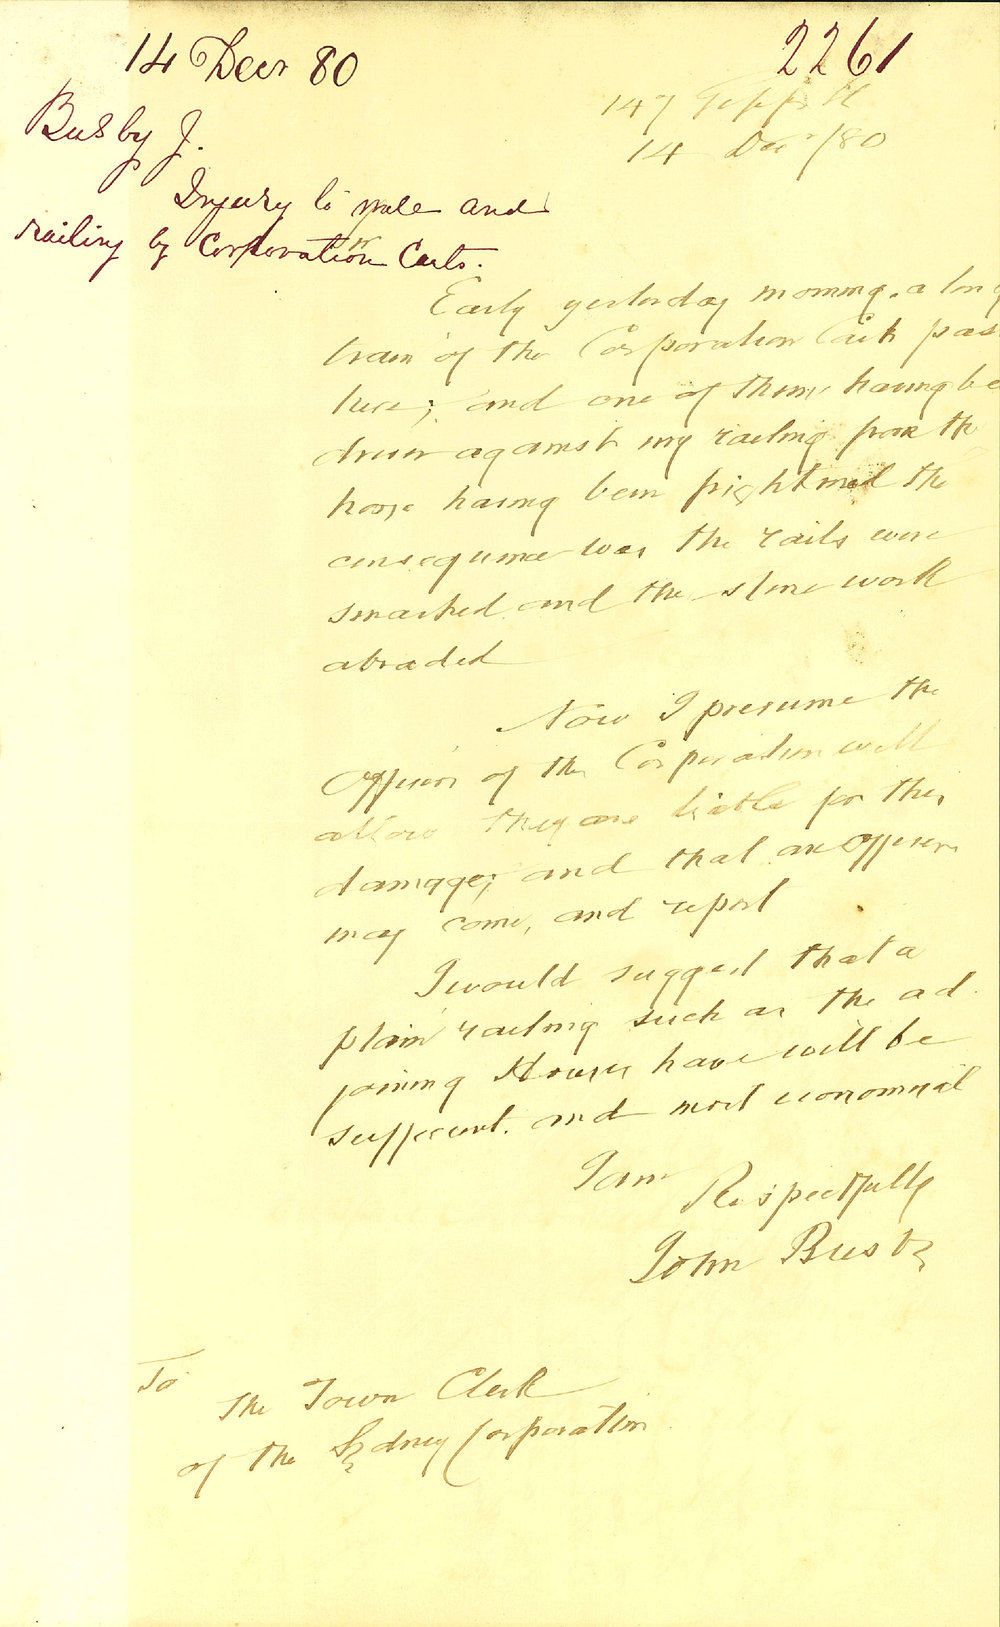 14 Decr 80
2261
147 Gipps St
14 Decr /80
Busby J.
Injury to and
railing by Corporation Carts.
Early yesterday morning. a long
train of the Corporation Carts pas
here; and one of them, having be
driven against my railing from the
horse having been frightened the
consequence was, the rails were
smashed and the stone work
abraded
Now I presume the
Officers of the Corporation will
allow they are liable for the
damage; and that an Officer
may come, and report
I would suggest that a
plain railing such as the ad
joining Houses have will be
sufficient. and most economical
I am
Respectfully
John Busby
To
The Town Clerk
of the Sydney Corporation